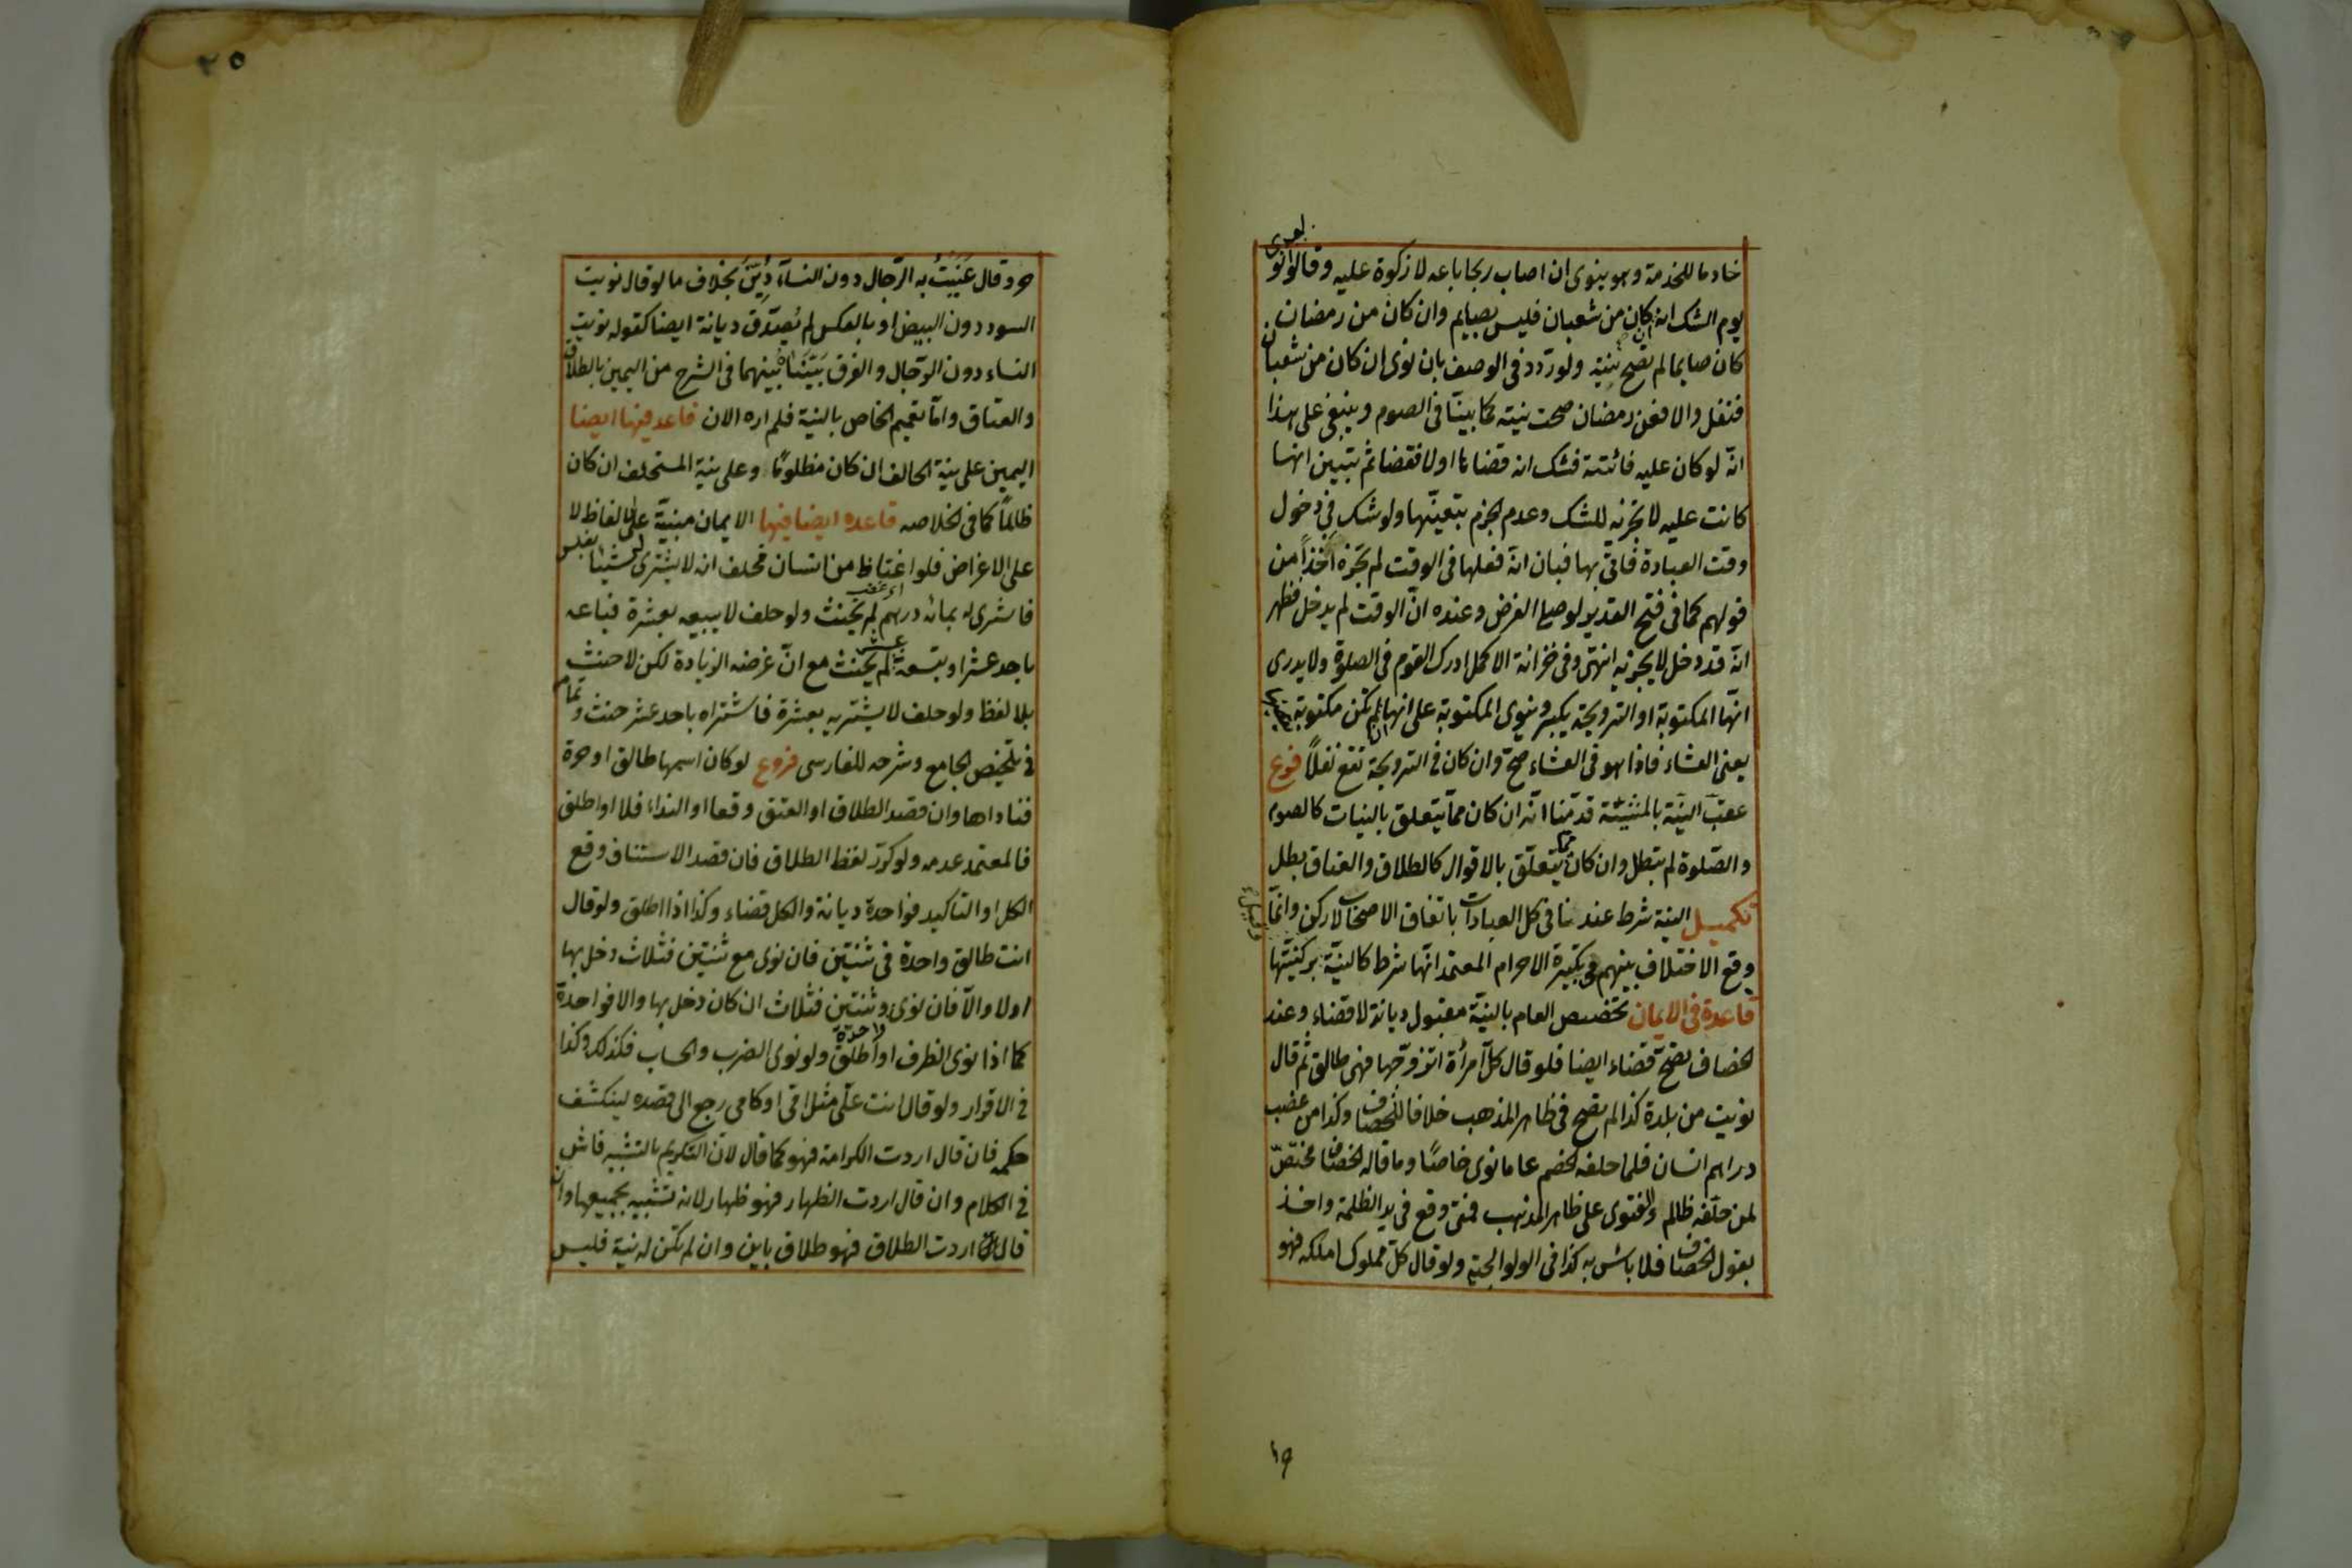 خادما للخدمة وهو ينوى ان اصاب ربحا باعه لا زكوة عليه وقالوا لو نوى
يوم الشك انه ان كان من شعبان فليس بصايم وان كان من رمضان
كان صايما لم تصح نيته ولو ردد فى الوصف بان نوى ان كان من شعبان
فنفل والا فعن رمضان صحت نيته كما بينا فى الصوم وينبغى على هذا
انّه لو كان عليه فائتة فشك انه قضاها او لا فقضاها ثم تبين انها
كانت عليه لا تجزئه للشك وعدم الجزم بتعينّها ولو شك فى دخول
وقت العبادة فاتى بها فبان انه فعلها فى الوقت لم تجزه اَخْذاً من
قولهم كما فى فتح القدير لو صلى الفرض وعنده انّ الوقت لم يدخل فظهر
انه قد دخل لا يجزئه انتهى وفى خزانة الاكمل ادرك القوم فى الصلوة ولا يدرى
انّها المكتوبة او الترويحة يكبر وينوى المكتوبة على انها ان لم تكن مكتوبة
يعنى العشاء فاذا هو فى العشاء صحّ وان كان فى الترويحة تقع نفلاً فرع
عقبَ النيّة بالمشيئة قدّمنا انّه ان كان ممّا يتعلق بالنيات كالصوم
والصّلوة لم تبطل وان كان مما يتعلّق بالاقوال كالطلاق والعتاق بطل
تكميل النية شرط عندنا فى كل العبادات باتفاق الاصحاب لا ركن وانّما
وقع الاختلاف بينهم فى تكبيرة الاحرام المعتمد انّها شرط كالنيّة
قاعدة فى الايمان تخصيص العام بالنيّة مقبول ديانة لا قضاء وعند
الخصاف يصحّ قضاء ايضا فلو قال كل امرأة اتزوّجها فهى طالق ثم قال
نويت من بلدة كذا لم يصح فى ظاهر المذهب خلافا للخصاف وكذا من غصب
دراهم انسان فلما حلفه الخصم عاما نوى خاصّا وما قاله الخصاف مخلّص
لمن حلّفه ظالم والفتوى على ظاهر المذهب فمتى وقع فى يد الظلمة واخذ
بقول الخصاف فلا بأس به كذا فى الولوالجية ولو قال كلّ مملوك املكه فهو
١٩
حر وقال عَنَيْتُ به الرّجال دون النساء دُيِّنَ بخلاف ما لو قال نويت
السود دون البيض او بالعكس لم يُصدّق ديانة ايضا كقوله نويت
النساء دون الرّجال والفرق بَيّنّاه بينهما فى الشرح من اليمين بالطلاق
والعتاق وامّا تعميم الخاص بالنية فلم اره الان قاعدة فيها ايضا
اليمين على نية الحالف ان كان مظلومًا وعلى نية المستحلف ان كان
ظالماً كما فى الخلاصه قاعده ايضا فيها الايمان مبنيّة على الالفاظ لا
على الاغراض فلو اغتاظ من انسان فحلف انه لا يشترى له شيئا بفلس
فاشترى له بمائة درهم لم يحنث ولو حلف لا يبيعه بعشرة فباعه
باحد عشر او بتسعة لم يحنث مع انّ غرضه الزيادة لكن لا حنث
بلا لفظ ولو حلف لا يشتريه بعشرة فاشتراه باحد عشر حنث وتمام
فى تلخيص الجامع وشرحه للفارسى فروع لو كان اسمها طالق او حرة
فناداها وان قصد الطلاق او العتق وقعا او النداء فلا او اطلق
فالمعتمد عدمه ولو كرّر لفظ الطلاق فان قصد الاستئناف وقع
الكل او التاكيد فواحدة ديانة والكل قضاء وكذا اذا اطلق ولو قال
انت طالق واحدة فى ثنتين فان نوى مع ثنتين فثلاث دخل بها
او لا والّا فان نوى وثنتين فثلاث ان كان دخل بها والا فواحدة
كما اذا نوى الظرف او اطلق واحدة ولو نوى الضرب والحساب فكذلك وكذا
فى الاقرار ولو قال انت علّى مثل امّى او كامى رجع الى قصده لينكشف
حكمه فان قال اردت الكرامة فهو كما قال لانّ التكريم بالتشبيه فاش
فى الكلام وان قال اردت الظهار فهو ظهار لانه تشبيه بجميعها وان
قال اردت الطلاق فهو طلاق باين وان لم تكن له نية فليس